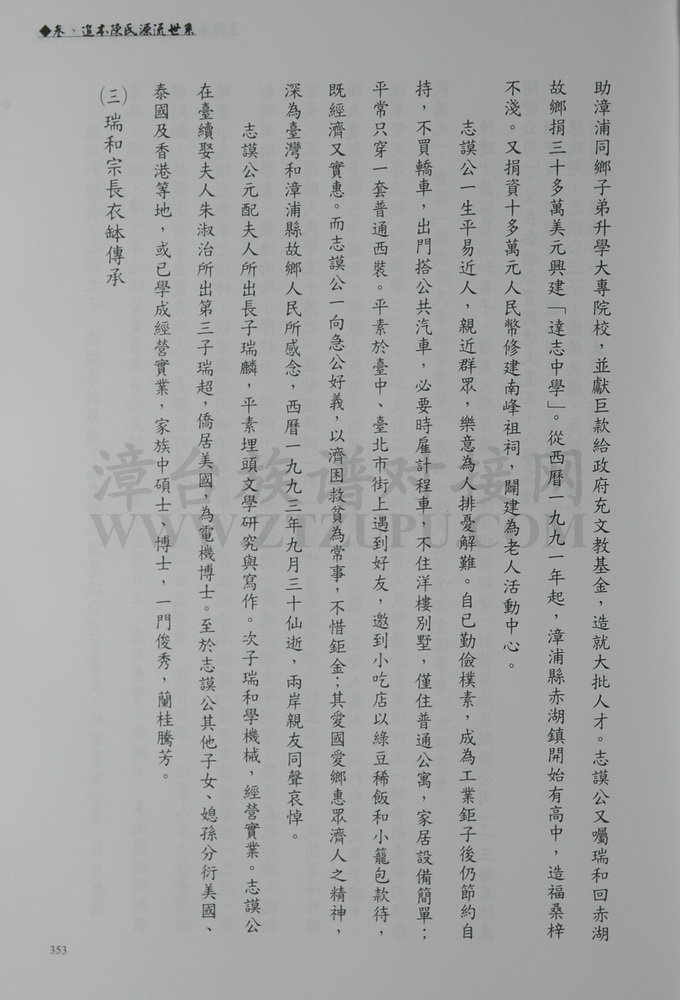 ◆參、追本陳氏源流世系
助漳浦同鄉子弟升學大專院校，並獻巨款給政府充文教基金，造就大批人才。志謨公又囑瑞和回赤湖
故鄉捐三十多萬美元興建「達志中學」。從西曆一九九一年起，漳浦縣赤湖鎮開始有高中，造福桑梓
不淺。又捐資十多萬元人民幣修建南峰祖祠，闢建為老人活動中心。
志謨公一生平易近人，親近群眾，樂意為人排憂解難。自己勤儉樸素，成為工業鉅子後仍節約自
持，不買轎車，出門搭公共汽車，必要時雇計程車，不住洋樓別墅，僅住普通公寓，家居設備簡單；
平常只穿一套普通西裝。平素於臺中、臺北市街上遇到好友，邀到小吃店以綠豆稀飯和小籠包款待，
既經濟又實惠。而志謨公一向急公好義，以濟困救貧為常事，不惜鉅金；其愛國愛鄉惠眾濟人之精神，
深為臺灣和漳浦縣故鄉人民所感念，西曆一九九三年九月三十仙逝，兩岸親友同聲哀悼。
志謨公元配夫人所出長子瑞麟，平素埋頭文學研究與寫作。次子瑞和學機械，經營實業。志謨公
在臺續娶夫人朱淑治所出第三子瑞超，僑居美國，為電機博士。至於志謨公其他子女、媳孫分衍美國、
泰國及香港等地，或已學成經營實業，家族中碩士、博士，一門俊秀，蘭桂騰芳。
（三）瑞和宗長衣缽傳承
漳台族谱对接网
WWW.ZTZUPU.COM
353